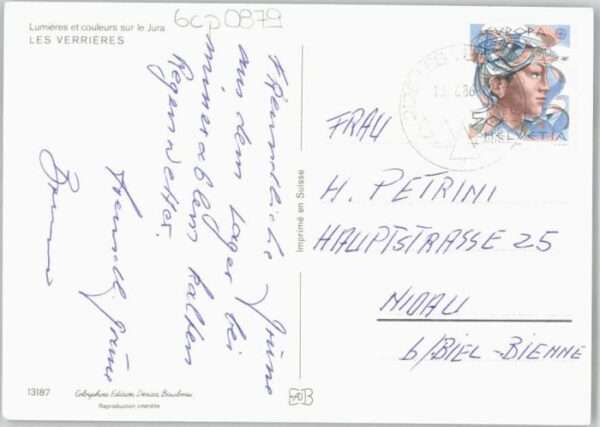 Lumières et couleurs sur le Jura
LES VERRIÈRES
6cp0879
Freundliche Grüsse
aus dem Lager bei
miserablem kalten
Regenwetter.
Freundl. Grüsse
EUROPA
50
HELVETIA
FRAU
H. PETRINI
HAUPTSTRASSE 25
NIDAU
b/BIEL-BIENNE
Imprimé en Suisse
13187
Reproduction interdite